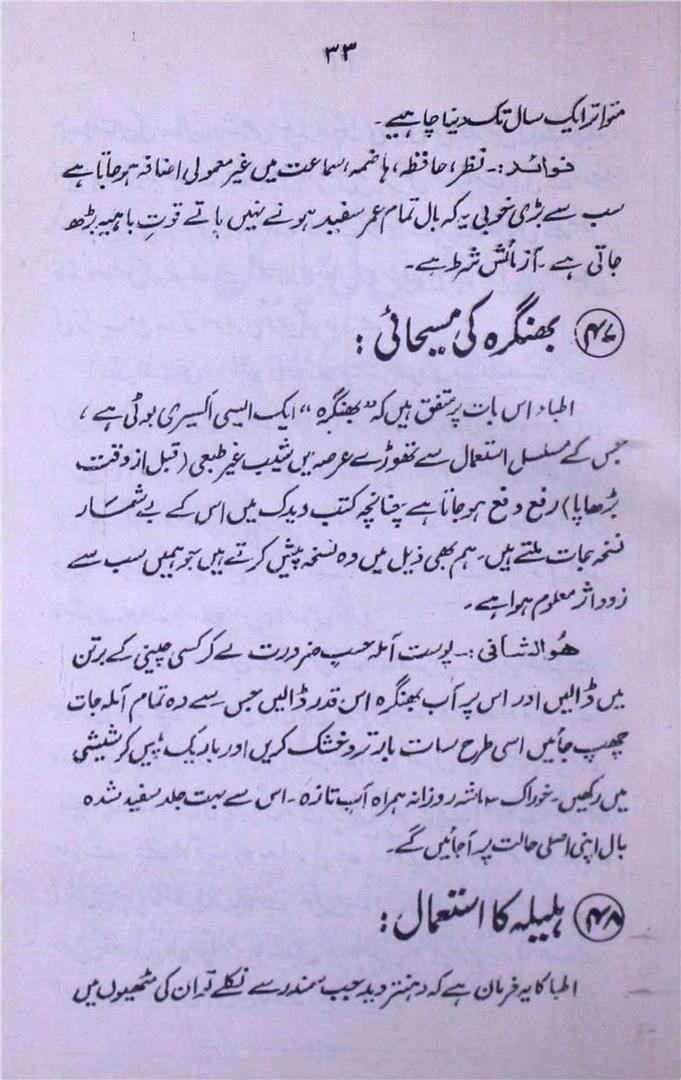 ۳۳
متواتر ایک سال تک دینا چاہیے۔
فوائد :۔ نظر، حافظہ، ہاضمہ، سماعت میں غیر معمولی اضافہ ہو جاتا ہے
سب سے بڑی خوبی یہ کہ بال تمام عمر سفید ہونے نہیں پاتے قوتِ باہیہ بڑھ
جاتی ہے۔ آزمائش شرط ہے۔
۴۷ بھنگرہ کی مسیحائی :
اطباء اس بات پر متفق ہیں کہ "بھنگرہ" ایک ایسی اکسیری بوٹی ہے،
جس کے مسلسل استعمال سے تھوڑے عرصہ میں شیب غیر طبعی (قبل از وقت
بڑھاپا) رفع دفع ہو جاتا ہے چنانچہ کتب ویدک میں اس کے بے شمار
نسخہ جات ملتے ہیں۔ ہم بھی ذیل میں وہ نسخہ پیش کرتے ہیں جو ہمیں سب سے
زود اثر معلوم ہوا ہے۔
ھوالشافی :۔ پوست آملہ حسبِ ضرورت لے کر کسی چینی کے برتن
میں ڈالیں اور اس پر آب بھنگرہ اس قدر ڈالیں جس سے وہ تمام آملہ جات
چھپ جائیں اسی طرح سات بار تر و خشک کریں اور باریک پیس کر شیشی
میں رکھیں۔ خوراک ماشہ روزانہ ہمراہ آب تازہ۔ اس سے بہت جلد سفید شدہ
بال اپنی اصلی حالت پر آجائیں گے۔
۴۸ ہلیلہ کا استعمال :
اطبا کا یہ فرمان ہے کہ دہنتر وید جب سمندر سے نکلے تو ان کی مٹھیوں میں